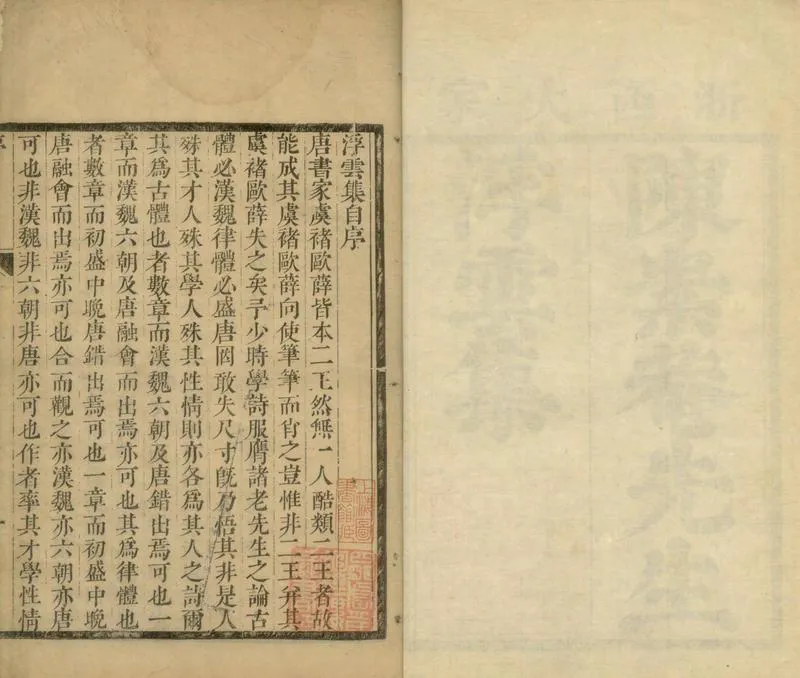 浮雲集自序
唐書家虞褚歐薛皆本二王然無一人酷類二王者故
能成其虞褚歐薛向使筆筆而肖之豈惟非二王弁其
虞褚歐薛失之矣予少時學詩服膺諸老先生之論古
體必漢魏律體必盛唐罔敢失尺寸旣乃悟其非是人
殊其才人殊其學人殊其性情則亦各爲其人之詩爾
其爲古體也者數章而漢魏六朝及唐錯出焉可也一
章而漢魏六朝及唐融會而出焉亦可也其爲律體也
者數章而初盛中晚唐錯出焉可也一章而初盛中晚
唐融會而出焉亦可也合而觀之亦漢魏亦六朝亦唐
可也非漢魏非六朝非唐亦可也作者率其才學性情
序